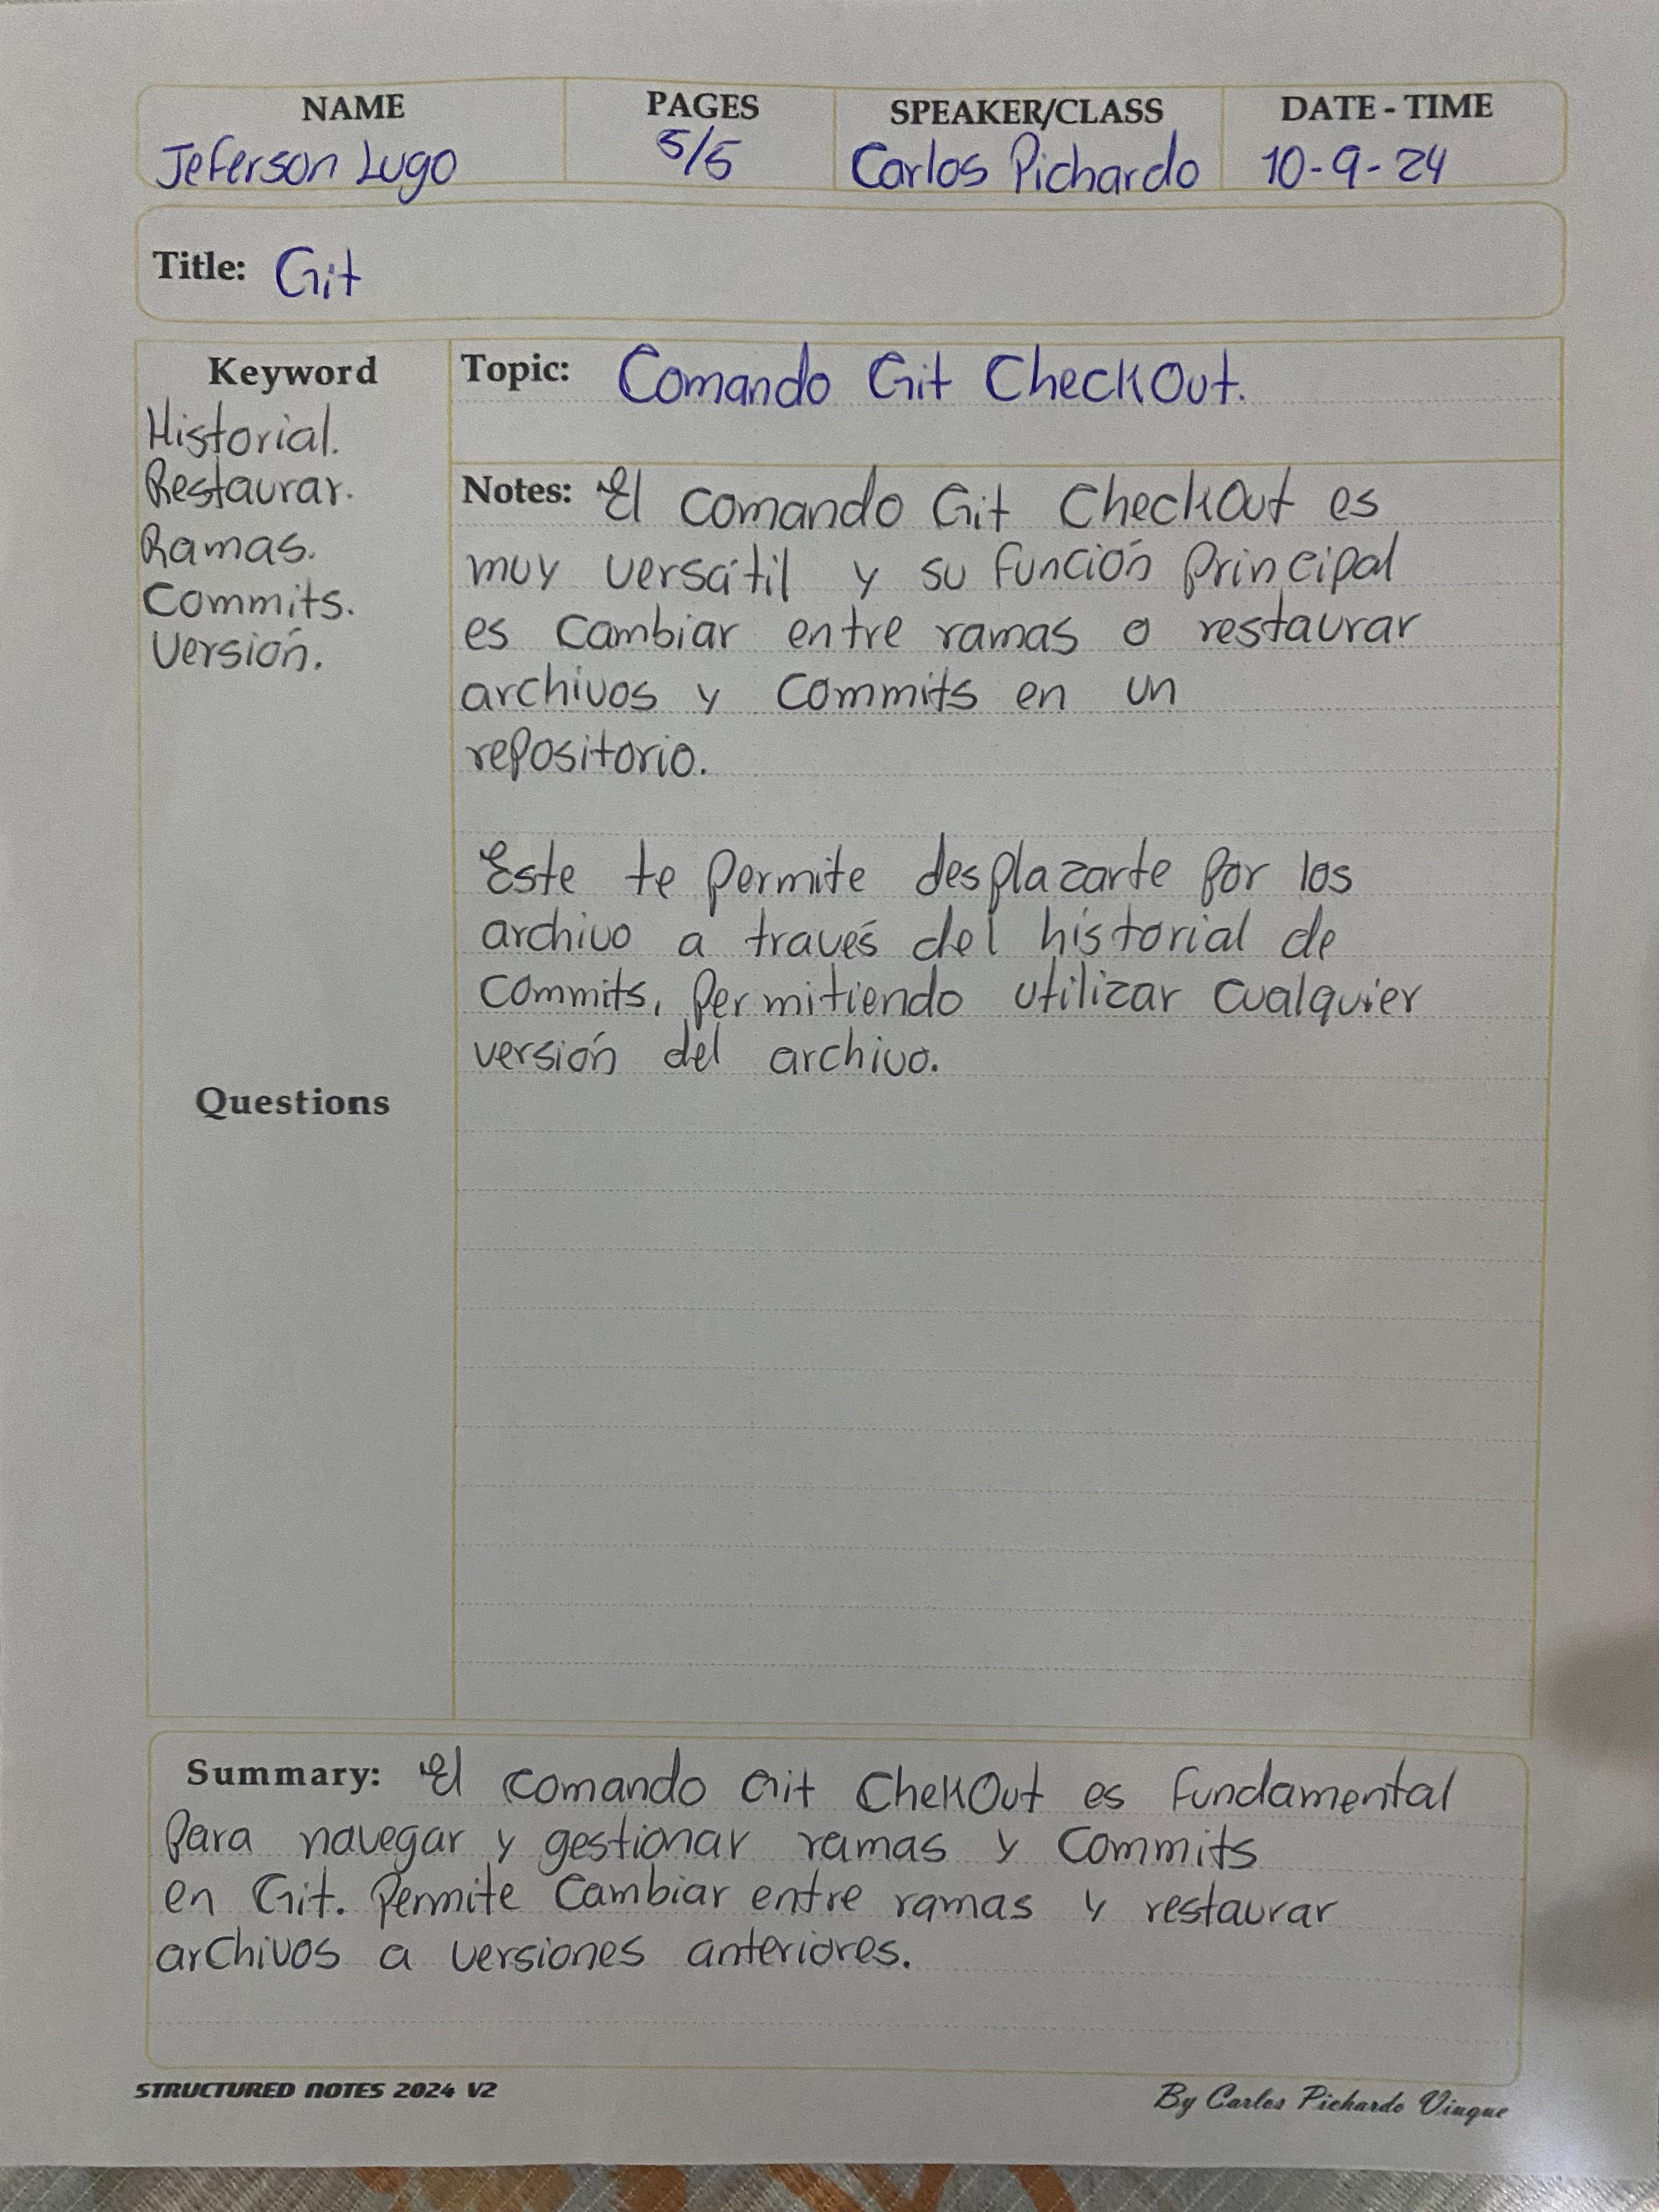 NAME PAGES SPEAKER/CLASS DATE - TIME
Jeferson Lugo 5/5 Carlos Pichardo 10-9-24
Title: Git
Keyword
Historial.
Restaurar.
Ramas.
Commits.
Versión.
Questions
Topic: Comando Git CheckOut.
Notes: El comando Git CheckOut es
muy versátil y su función principal
es cambiar entre ramas o restaurar
archivos y commits en un
repositorio.
Este te permite desplazarte por los
archivo a través del historial de
commits, permitiendo utilizar cualquier
versión del archivo.
Summary: El comando Git ChekOut es fundamental
para navegar y gestionar ramas y commits
en Git. Permite cambiar entre ramas y restaurar
archivos a versiones anteriores.
STRUCTURED NOTES 2024 V2
By Carlos Pichardo Viuque